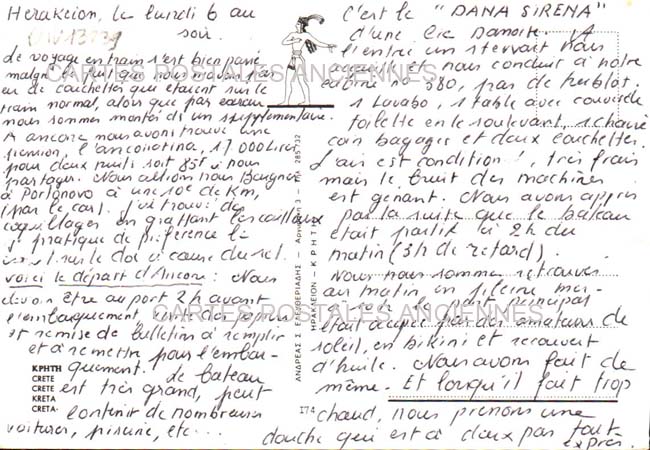 Herakeion, le lundi 6 au
soir.
Le voyage en train s'est bien passé
malgré le fait que nous n'avons pas
eu de couchettes qui étaient sur le
train normal, alors que par
nous sommes montés ds un supplémentaire.
A ancone nous avons trouvé une
pension, l'anconitana, 17.000 Lires
pour deux nuits soit 85f à nous
partager. Nous allions nous baigner
à Portonovo à une 10e de Km,
(par le car). J'ai trouvé des
coquillages en grattant les cailloux
Je pratique de préférence la
sur le dos à cause du sel.
voici le départ d'Ancone : Nous
devions être au port 2h avant
l'embarquement,
et remise de bulletins à remplir
et à remettre pour l'embar-
quement. Le bateau
est très grand, peut
contenir de nombreuses
voitures, piscine, etc...
ΚΡΗΤΗ
CRETE
CRETE
KRETA
CRETA
ΑΝΔΡΕΑΣ Σ. ΕΛΕΥΘΕΡΙΑΔΗΣ
ΗΡΑΚΛΕΙΟΝ - ΚΡΗΤΗ
174
C'est le "DANA SIRENA"
d'une Cie Danoise. A
l'entrée un stewart nous
accueille et nous conduit à notre
cabine n° 380, pas de hublot,
1 lavabo, 1 table avec couvercle
toilette en le soulevant, 1 chaise
coin bagages et deux couchettes.
L'air est conditionné, très frais
mais le bruit des machines
est genant. Nous avons appris
par la suite que le bateau
était parti à 2h du
matin (3h de retard).
Nous nous sommes retrouvés
au matin en pleine mer
le pont principal
était occupé par des amateurs de
soleil, en bikini et recouvert
d'huile. Nous avons fait de
même. Et lorsqu'il fait trop
chaud, nous prenons une
douche qui est à deux pas tout
exprès.
CARTES POSTALES ANCIENNES
CARTES POSTALES ANCIENNES